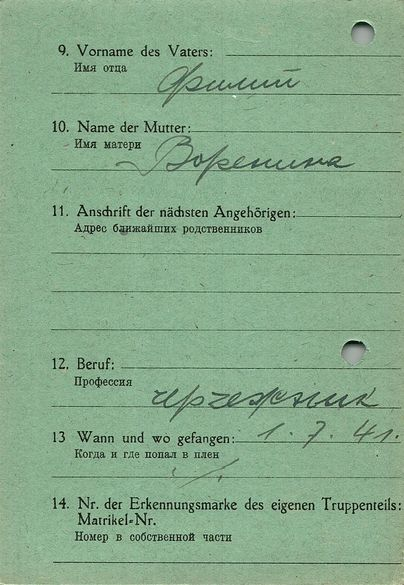 9. Vorname des Vaters:
Имя отца
Филип
10. Name der Mutter:
Имя матери
Воренина
11. Anschrift der nächsten Angehörigen:
Адрес ближайших родственников
12. Beruf:
Профессия
13 Wann und wo gefangen: 1. 7. 41.
Когда и где попал в плен
14. Nr. der Erkennungsmarke des eigenen Truppenteils:
Matrikel-Nr.
Номер в собственной части